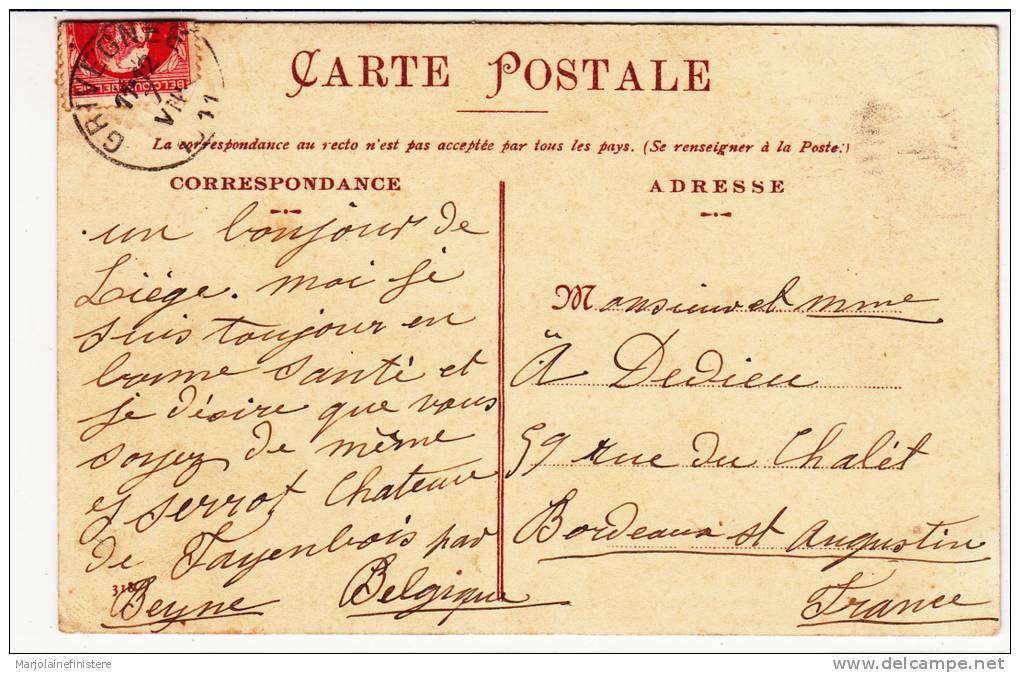 GRIVEGNÉE
BELGIQUE BELGIË
11
CARTE POSTALE
La correspondance au recto n'est pas acceptée par tous les pays. (Se renseigner à la Poste.)
CORRESPONDANCE
un bonjour de
Liége. moi je
suis toujour en
bonne santé et
je désire que vous
soyez de même
Serrot Chateau
de Fayenbois par
Beyne Belgique
318
ADRESSE
Monsieur et mme
A Dedieu
59 rue du Chalêt
Bordeaux st Augustin
France
Marjolainefinistere
delcampe.net